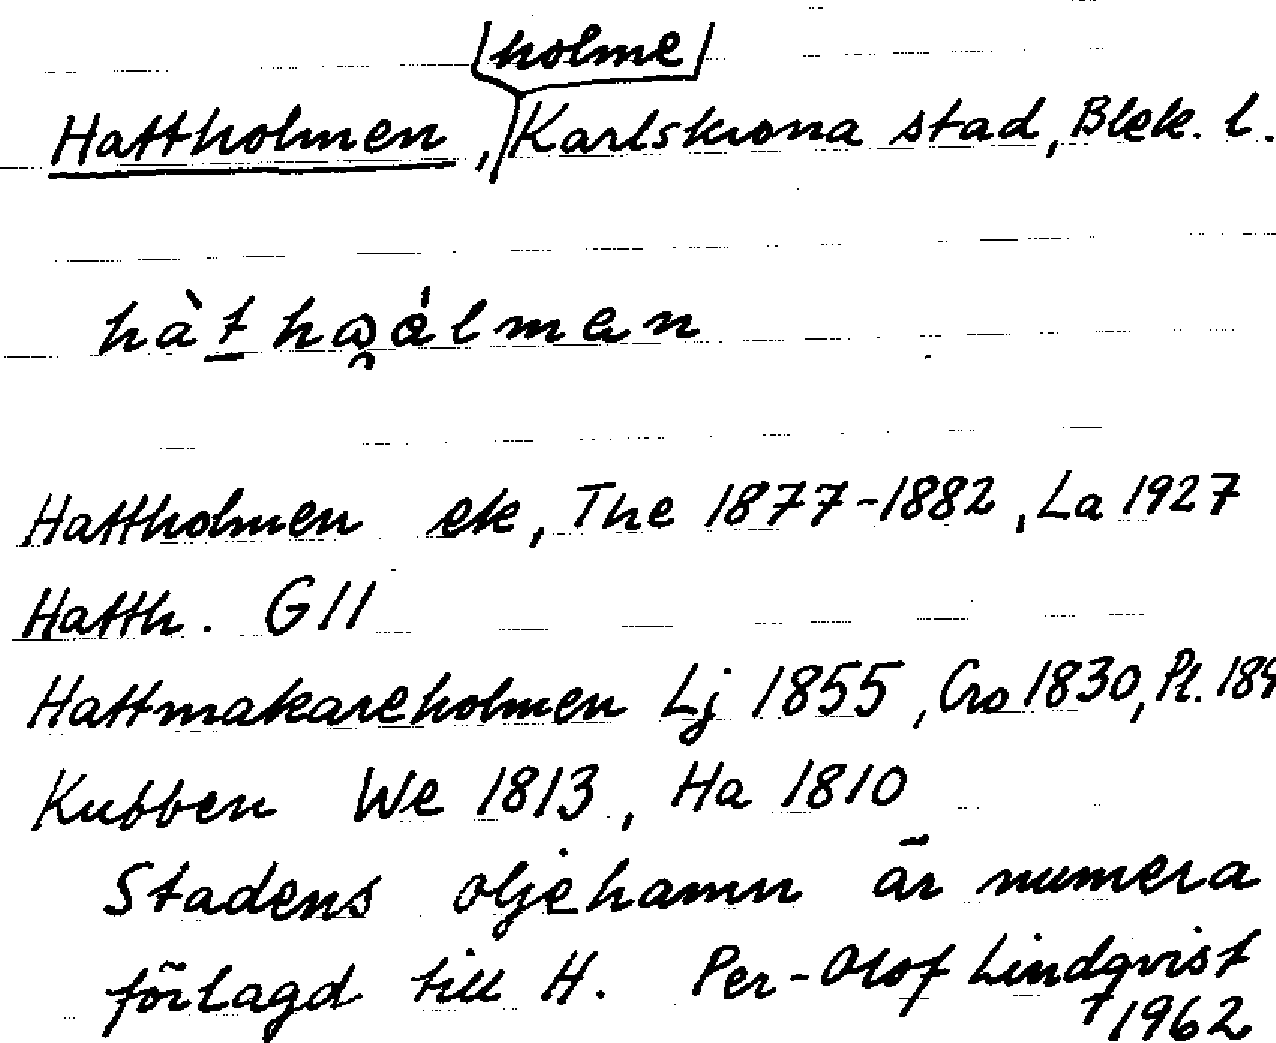 holme
Hattholmen, Karlskrona stad, Blek. l.
hàt hωȯlmen
Hattholmen ek, The 1877-1882, La 1927
Hatth. G11
Hattmakareholmen Lj 1855, Cro 1830, Pl. 184
Kubben We 1813, Ha 1810
Stadens oljehamn är numera
förlagd till H. Per-Olof Lindqvist
1962